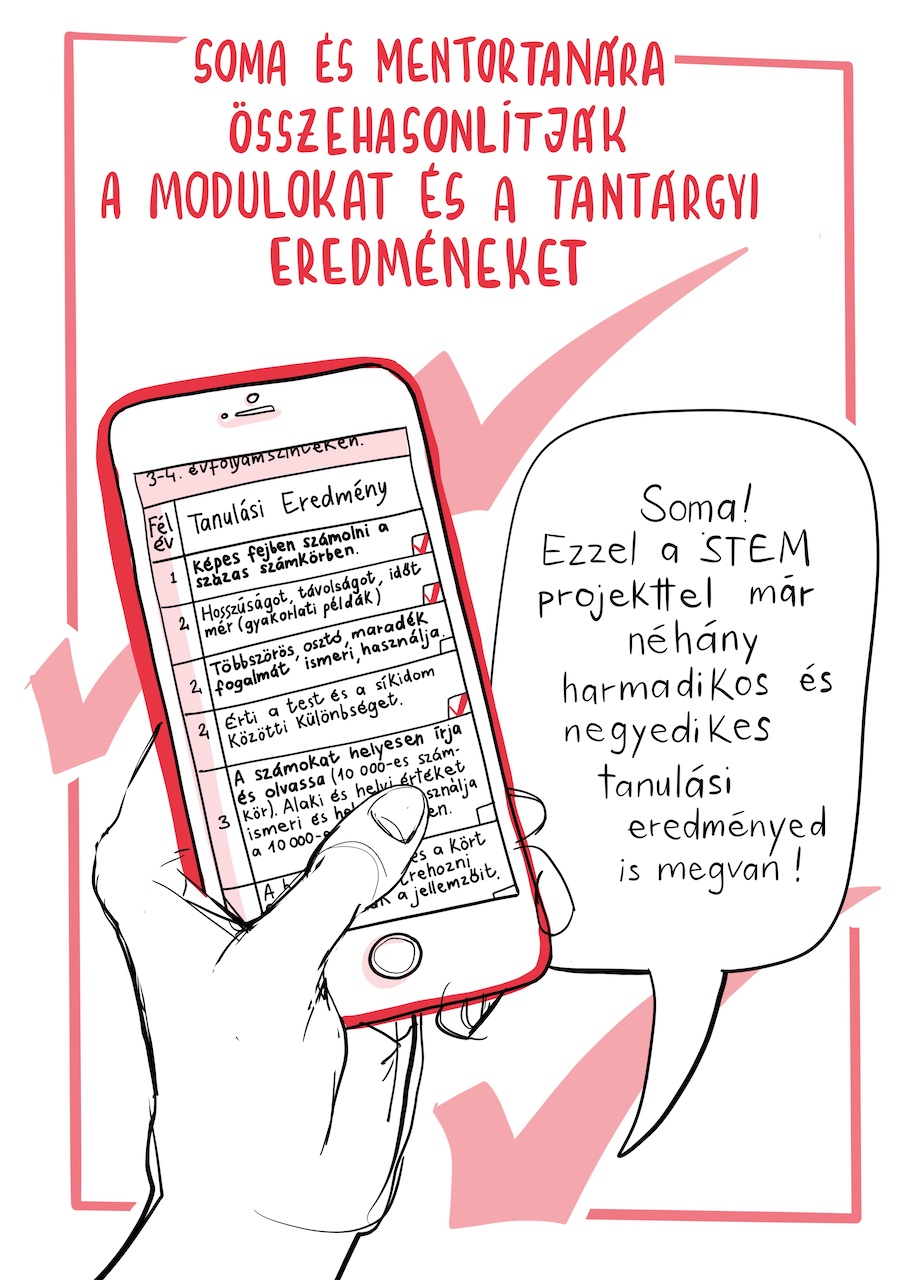 SOMA ÉS MENTORTANÁRA
ÖSSZEHASONLÍTJÁK
A MODULOKAT ÉS A TANTÁRGYI
EREDMÉNEKET
3-4. évfolyamszinteken.
Fél
év
Tanulási Eredmény
1
Képes fejben számolni a
százas számkörben.
2
Hosszúságot, távolságot, időt
mér (gyakorlati példák)
2
Többszörös, osztó, maradék
fogalmát ismeri, használja.
2
Érti a test és a síkidom
közötti különbséget.
3
A számokat helyesen írja
és olvassa (10 000-es szám-
kör). Alaki és helyi értéket
ismeri és
a 10 000-es
A
és a kört
a jellemzőit.
Soma!
Ezzel a STEM
projekttel már
néhány
harmadikos és
negyedikes
tanulási
eredményed
is megvan!